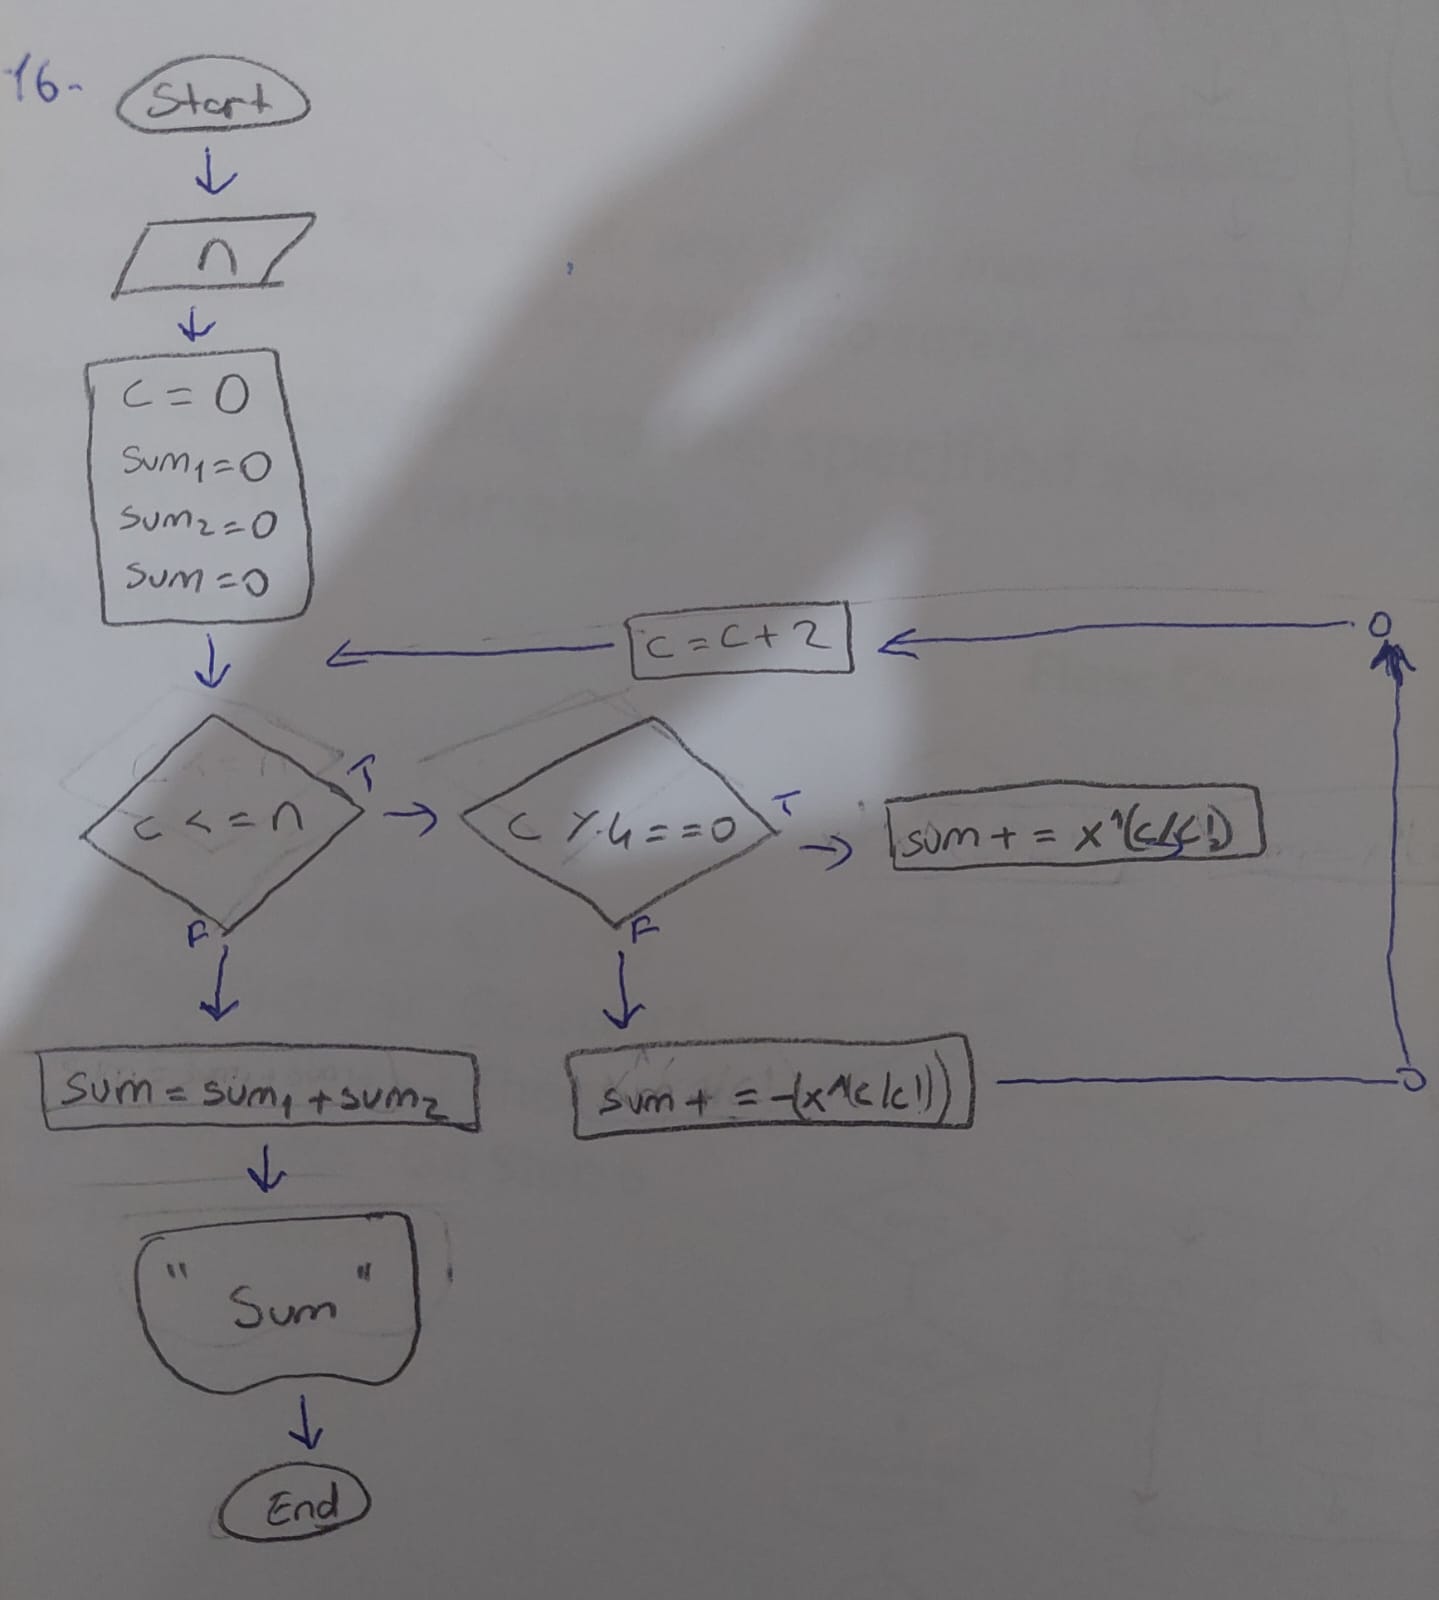 16-
Start
n
c = 0
sum1 = 0
sum2 = 0
sum = 0
c = c + 2
c <= n
T
F
c % 4 == 0
T
F
sum + = x^(c/c!)
sum = sum1 + sum2
sum + = -(x^(c/c!))
" Sum "
End